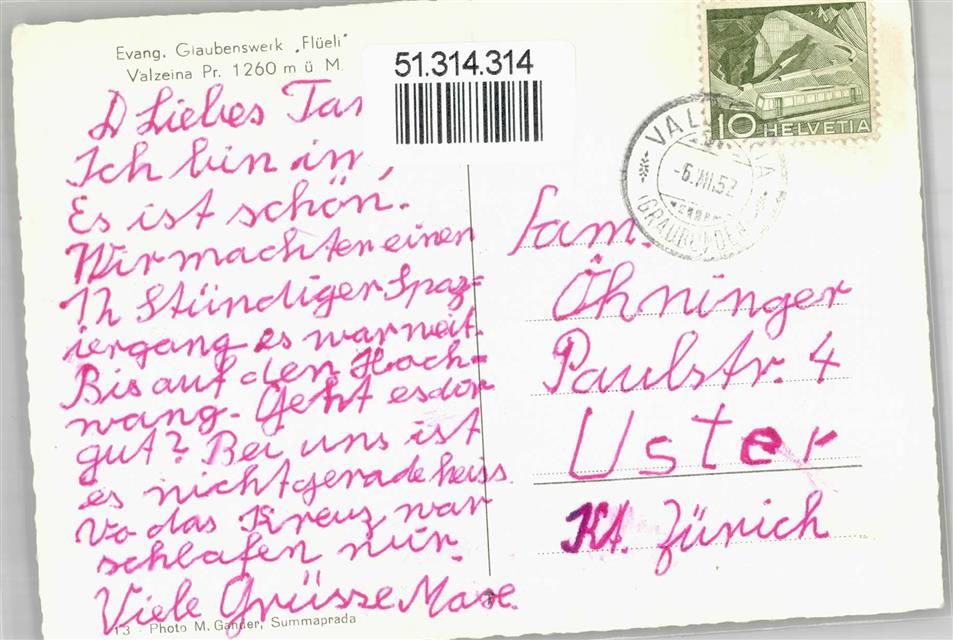 Evang. Glaubenswerk „Flüeli"
Valzeina Pr. 1260 m ü M
51.314.314
Liebes
Ich bin in
Es ist schön.
Wir machten einen
12 Stündiger Spaz-
iergang es war weit.
Bis auf den Hoch-
wang. Geht es dor
gut? Bei uns ist
es nicht gerade heiss.
Vo das Kreuz war
schlafen wir.
Viele Grüsse
13 Photo M. Gander, Summaprada
10 HELVETIA
-6.VIII.52
GRAUBÜNDEN
Fam.
Öhninger
Paulstr. 4
Uster
Kt. Zürich